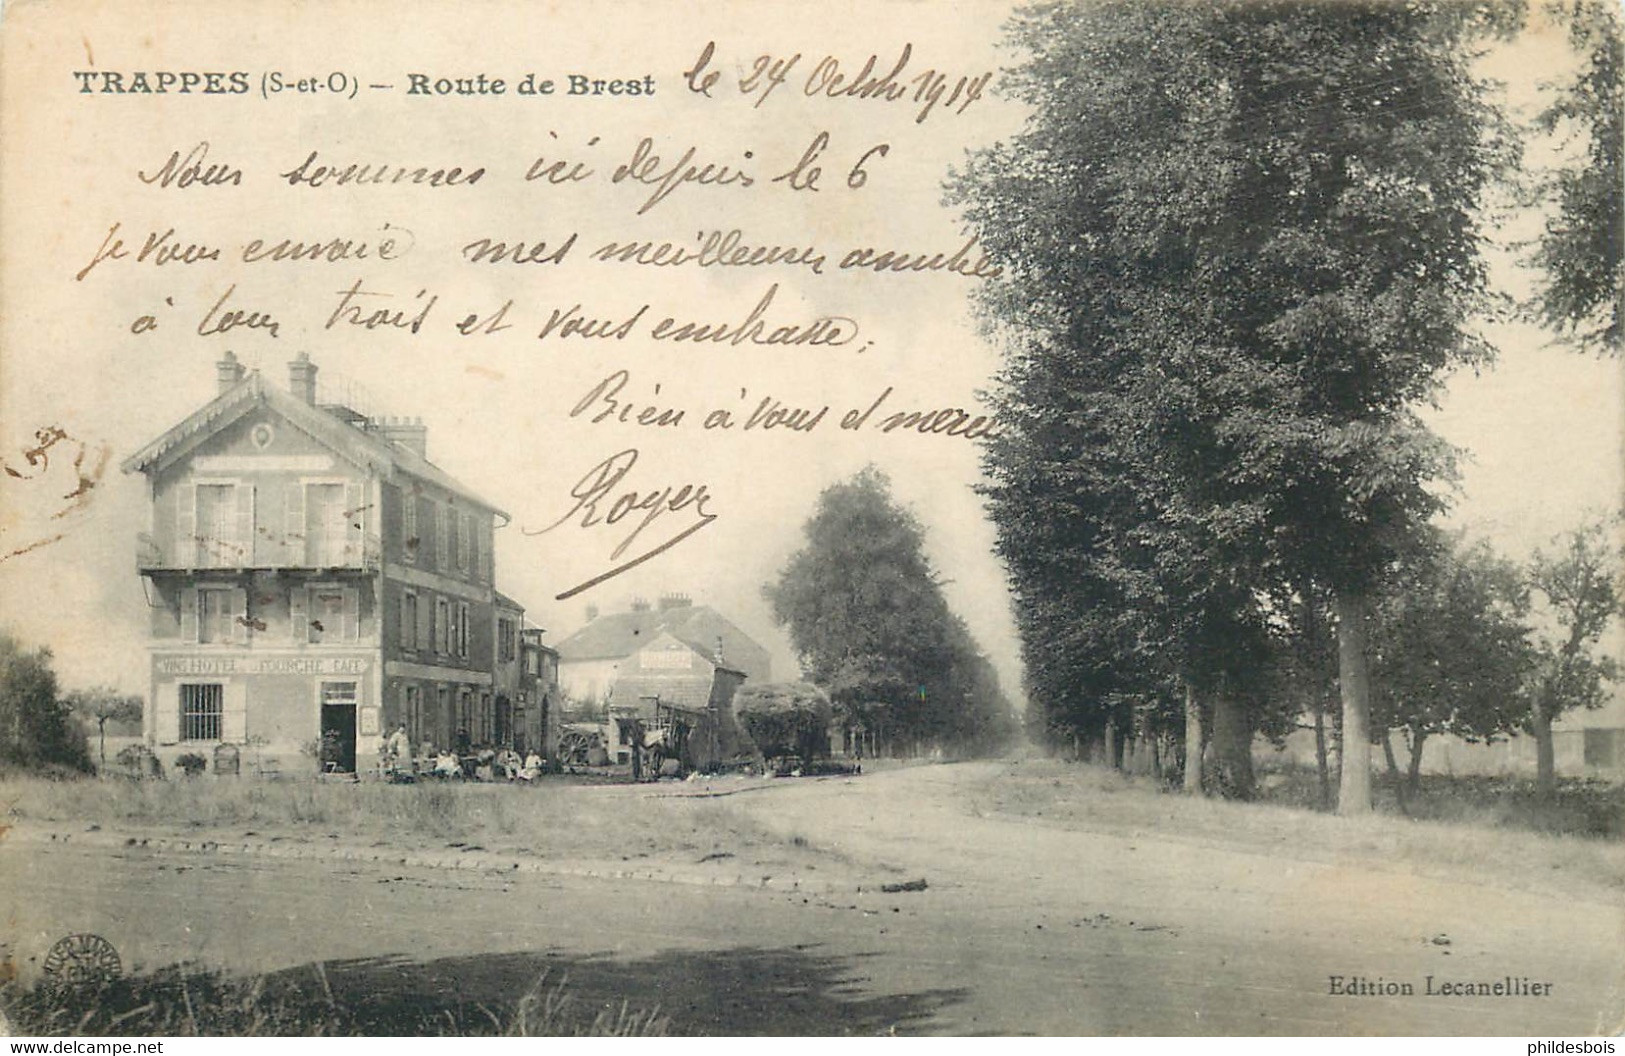 TRAPPES (S-et-O) — Route de Brest le 24 Octobre 1914
Nous sommes ici depuis le 6
je vous envoie mes meilleures amitiés
à tous trois et vous embrasse.
Bien à vous et merci
Roger
VINS HOTEL FOURCHE CAFE
Edition Lecanellier
www.delcampe.net
phildesbois